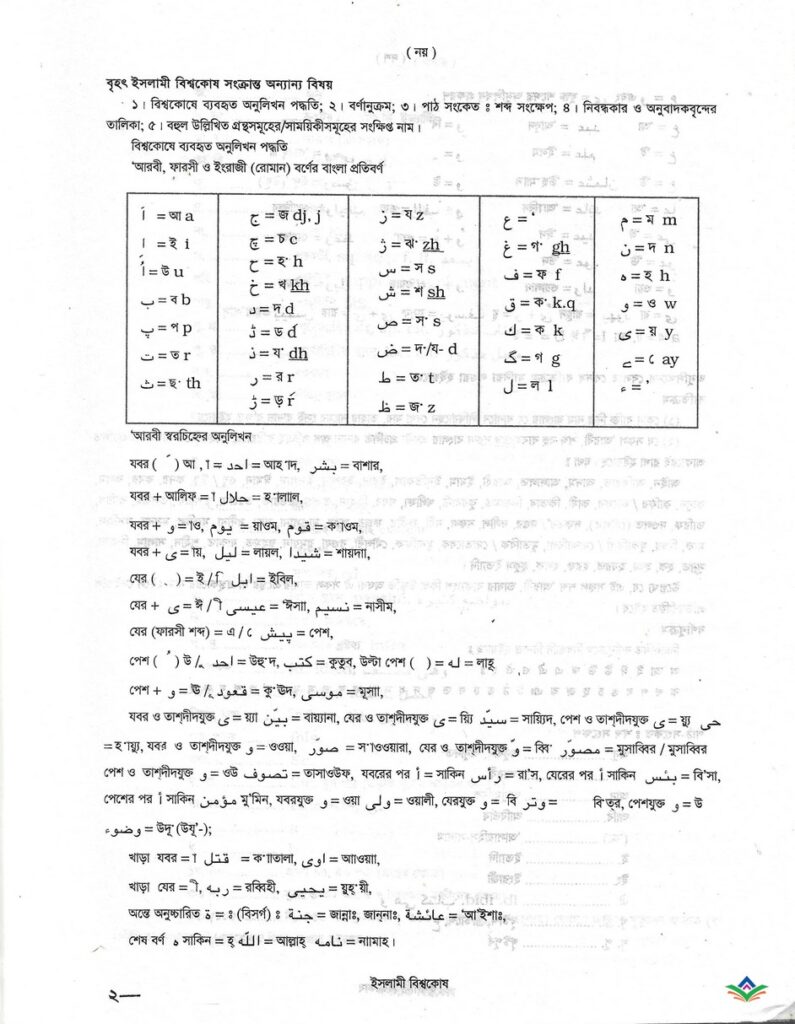 ( নয় )
বৃহৎ ইসলামী বিশ্বকোষ সংক্রান্ত অন্যান্য বিষয়
১। বিশ্বকোষে ব্যবহৃত অনুলিখন পদ্ধতি; ২। বর্ণানুক্রম; ৩। পাঠ সংকেত ঃ শব্দ সংক্ষেপ; ৪। নিবন্ধকার ও অনুবাদকবৃন্দের
তালিকা; ৫। বহুল উল্লিখিত গ্রন্থসমূহের/সাময়িকীসমূহের সংক্ষিপ্ত নাম।
বিশ্বকোষে ব্যবহৃত অনুলিখন পদ্ধতি
'আরবী, ফারসী ও ইংরাজী (রোমান) বর্ণের বাংলা প্রতিবর্ণ
اَ = আ a
ا = ই i
اُ = উ u
ب = ব b
پ = প p
ت = ত r
ث = ছ· th
ج = জ dj, j
چ = চ c
ح = হ· h
خ = খ kh
د = দ d
ڈ = ড d
ذ = য· dh
ر = র r
ڑ = ড় ŕ
ز = য z
ژ = ঝ· zh
س = স s
ش = শ sh
ص = স· s
ض = দ·/য- d
ط = ত· t
ظ = জ· z
ع = '
غ = গ· gh
ف = ফ f
ق = ক· k.q
ك = ক k
گ = গ g
ل = ল l
م = ম m
ن = দ n
ه = হ h
و = ও w
ى = য় y
ے = ে ay
ء = '
'আরবী স্বরচিহ্নের অনুলিখন
যবর ( َ ) আ , া, احد = আহ·াদ, بشر = বাশার,
যবর + আলিফ = া حلال = হ·ালাল,
যবর + و = াও, يوم = য়াওম, قوم = ক·াওম,
যবর + ى = ায়, ليل = লায়ল, شيدا = শায়দাা,
যের ( ِ ) = ই / ি ابل = ইবিল,
যের + ى = ঈ / ী عيسى = 'ঈসাা, نسيم = নাসীম,
যের (ফারসী শব্দ) = এ / ে پيش = পেশ,
পেশ ( ُ ) উ / ু احد = উহু·দ, كتب = কুতুব, উল্টা পেশ ( ) = له = লাহূ
পেশ + و = ঊ/ ূ قعود = কু·ঊদ, موسى = মূসাা,
যবর ও তাশ্‌দীদযুক্ত ى = য়্যা بيّن = বায়্যানা, যের ও তাশ্‌দীদযুক্ত ى = য়্যি سيّد = সায়্যিদ, পেশ ও তাশ্‌দীদযুক্ত ى = য়্যু حى
= হ·ায়্যু, যবর ও তাশ্‌দীদযুক্ত و = ওওয়া, صوّر = স·াওওয়ারা, যের ও তাশ্‌দীদযুক্ত و = ব্বি مصوّر = মুসাব্বির / মুসাব্বির
পেশ ও তাশ্‌দীদযুক্ত و = ওউ تصوف = তাসাওউফ, যবরের পর أ = সাকিন رأس = রা'স, যেরের পর أ সাকিন بئس = বি'সা,
পেশের পর أ সাকিন مؤمن মু'মিন, যবরযুক্ত و = ওয়া ولى = ওয়ালী, যেরযুক্ত و = বি وتر = বিত্‌র, পেশযুক্ত و = উ
وضوء = উদূ· (উযূ-);
খাড়া যবর = া قتل = ক·াাতালা, اوى = আাওয়াা,
খাড়া যের = ী, ربه = রব্বিহী, يحيى = য়ুহ্·য়ী,
অন্তে অনুচ্চারিত ة = ঃ (বিসর্গ) ঃ جنة = জান্নাঃ, জান্‌নাঃ, عائشة = 'আ'ইশাঃ,
শেষ বর্ণ ه সাকিন = হ্ الله = আল্লাহ্ نامه = নাামাহ।
ইসলামী বিশ্বকোষ
২—